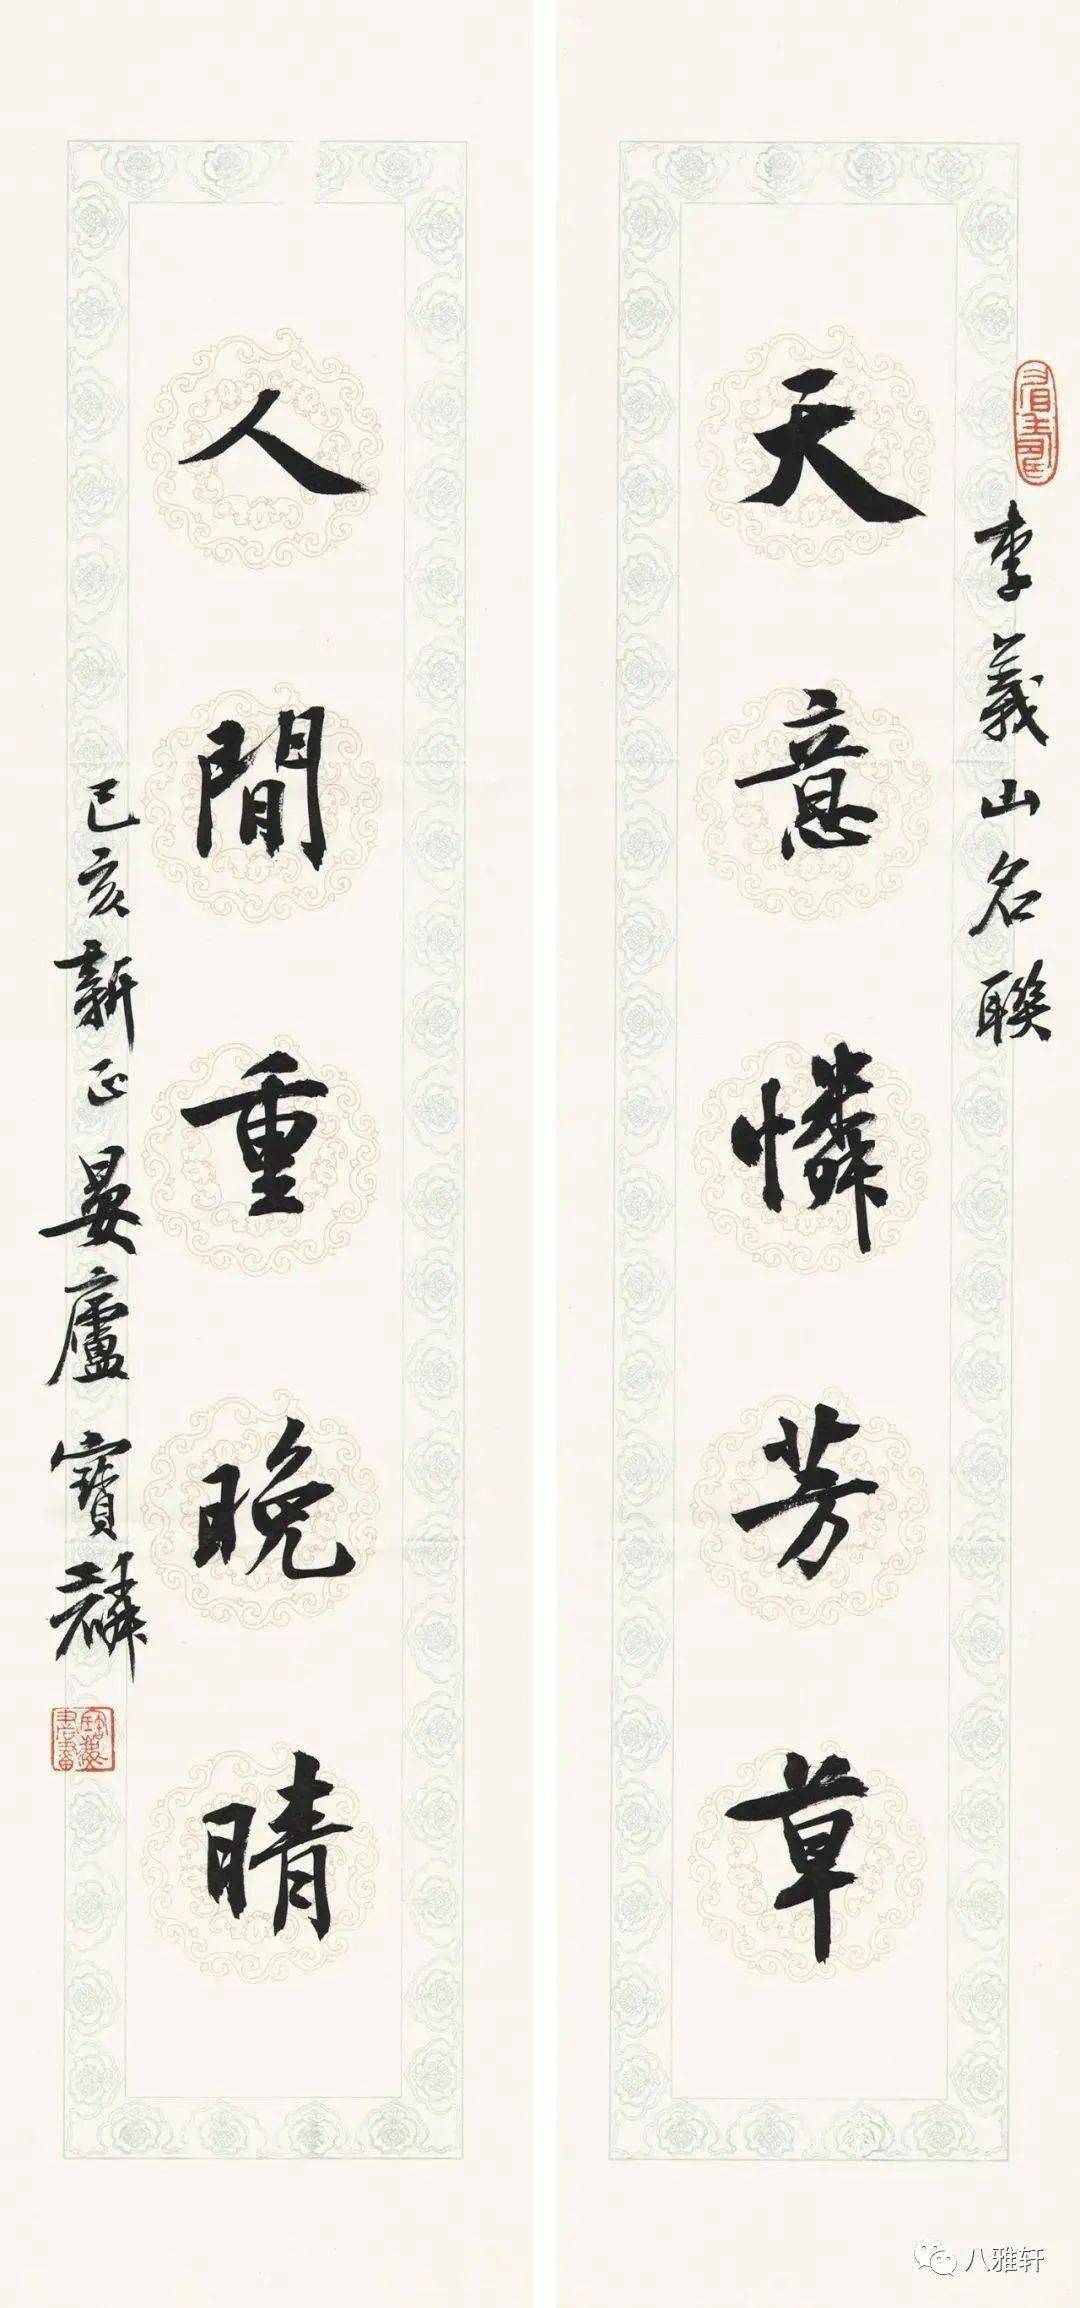 李義山名聯
天意憐芳草
人間重晚晴
己亥新正晏廬寶麟
八雅轩